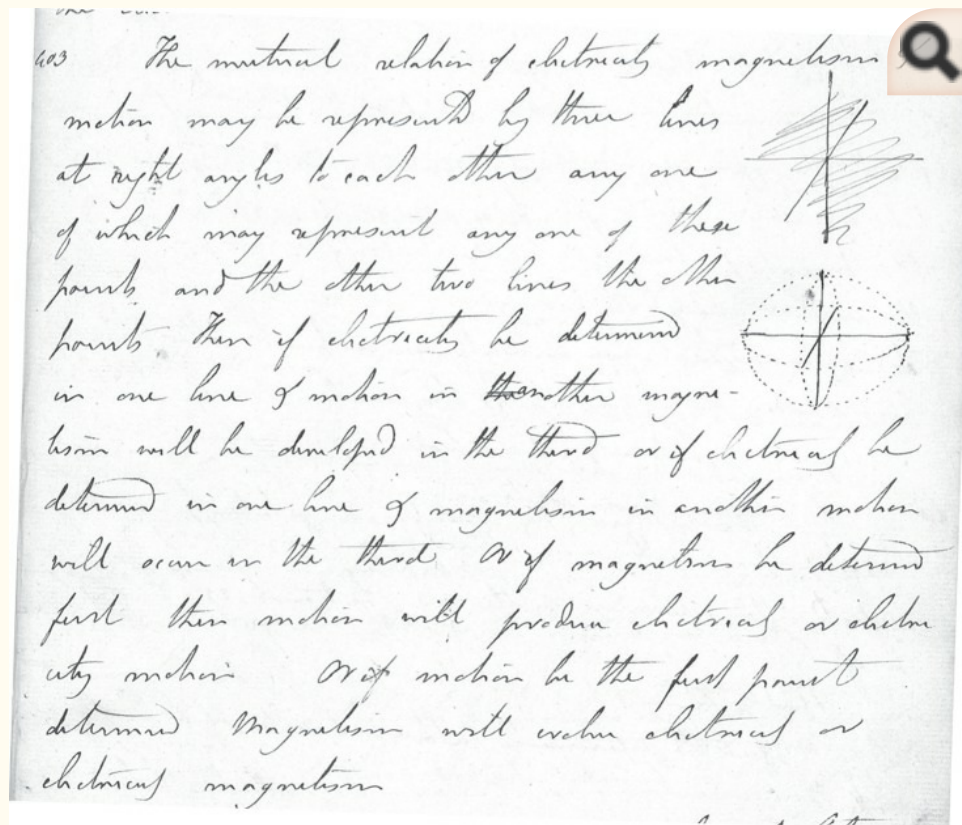 403 The mutual relation of electricity magnetism &
motion may be represented by three lines
at right angles to each other any one
of which may represent any one of these
points and the other two lines the other
points. Then if electricity be determined
in one line & motion in another magne-
tism will be developed in the third or if electricity be
determined in one line & magnetism in another motion
will occur in the third. Or if magnetism be determined
first then motion will produce electricity or electri
city motion Or if motion be the first point
determined Magnetism will evolve electricity or
electricity magnetism